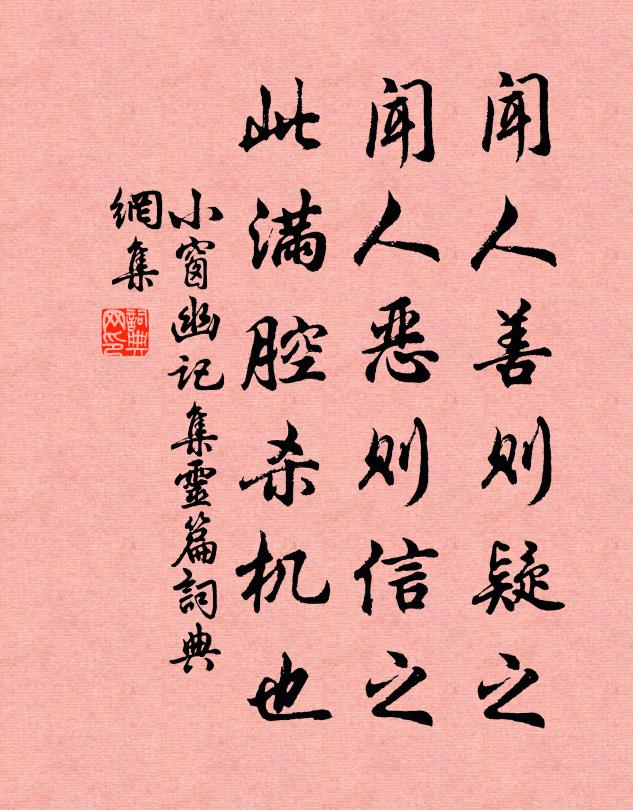 闻人善则疑之
闻人恶则信之
此满腔杀机也
小窗幽记集靈篇詞典
網集
詞典
网印